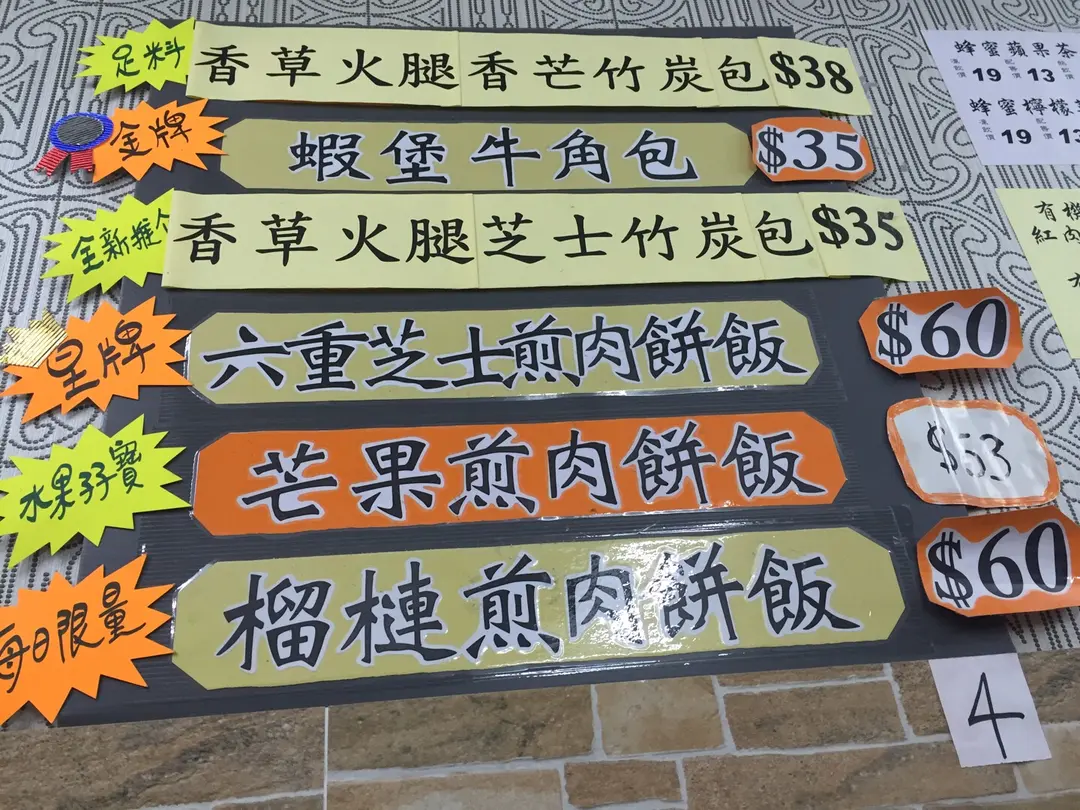 足料 香草火腿香芒竹炭包 $38
金牌 蝦堡牛角包 $35
全新推介 香草火腿芝士竹炭包 $35
皇牌 六重芝士煎肉餅飯 $60
水果孖寶 芒果煎肉餅飯 $53
每日限量 榴槤煎肉餅飯 $60
4
蜂蜜蘋果茶
19 13
蜂蜜檸檬
19 13
有機
紅肉